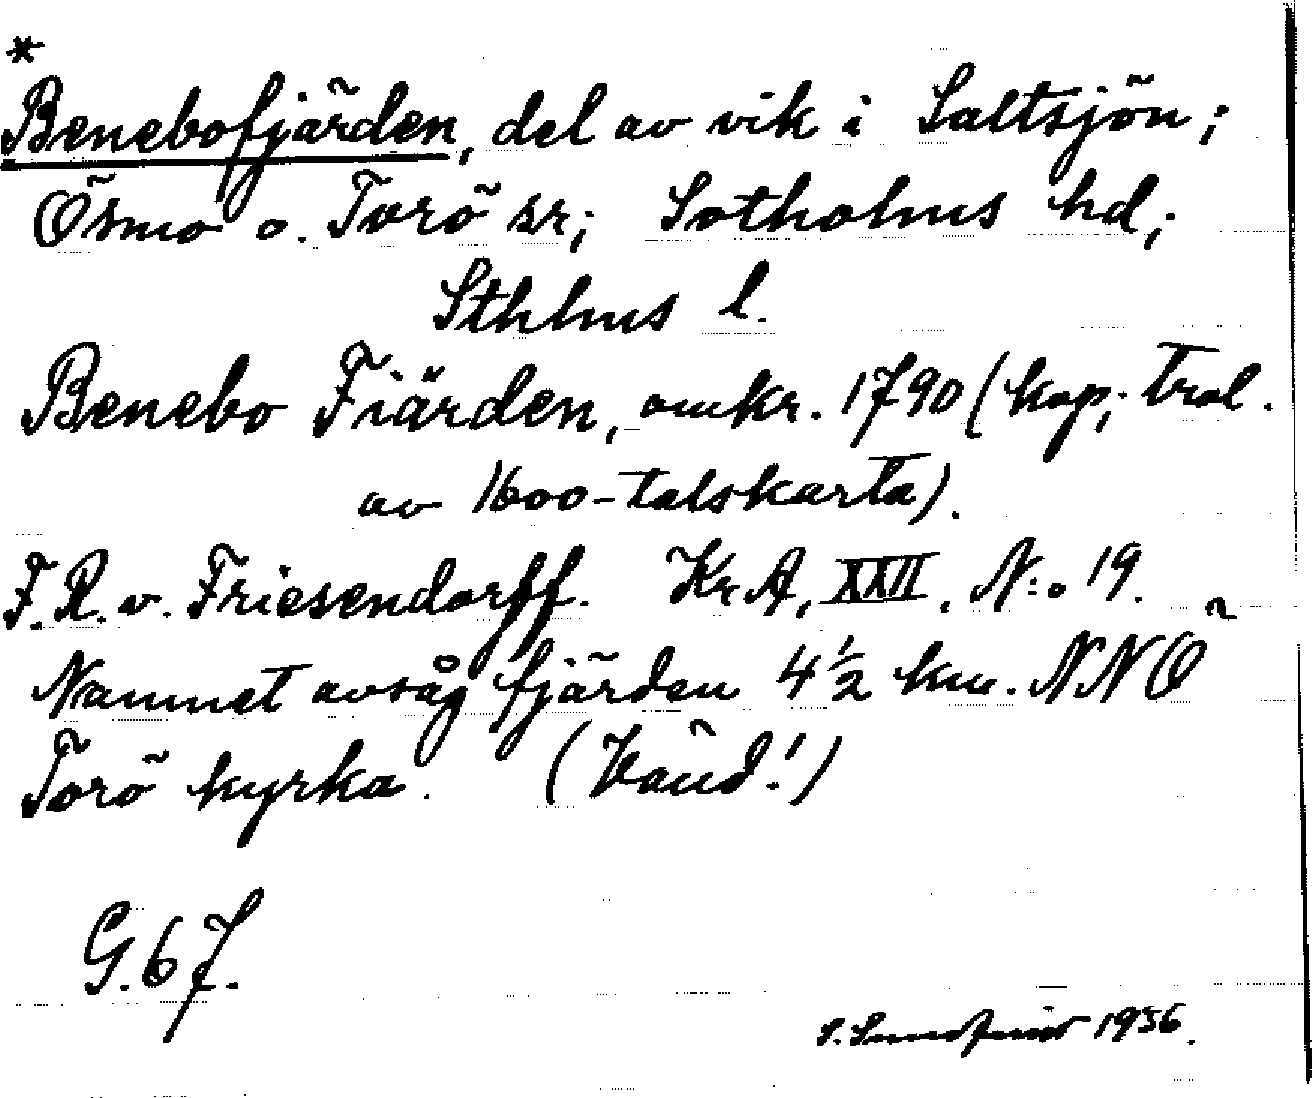 *
Benebofjärden, del av vik i Saltsjön;
Ösmo o. Torö sr; Sotholms hd;
Sthlms l.
Benebo Fiärden, omkr. 1790 (kop; trol.
av 1600-talskarta).
F. R. v. Friesendorff. Kr. A, XXII, N:o 19.
Namnet avsåg fjärden 4½ km. NNÖ
Torö kyrka. (Vänd!)
G. 67.
S. Sundqvist 1936.